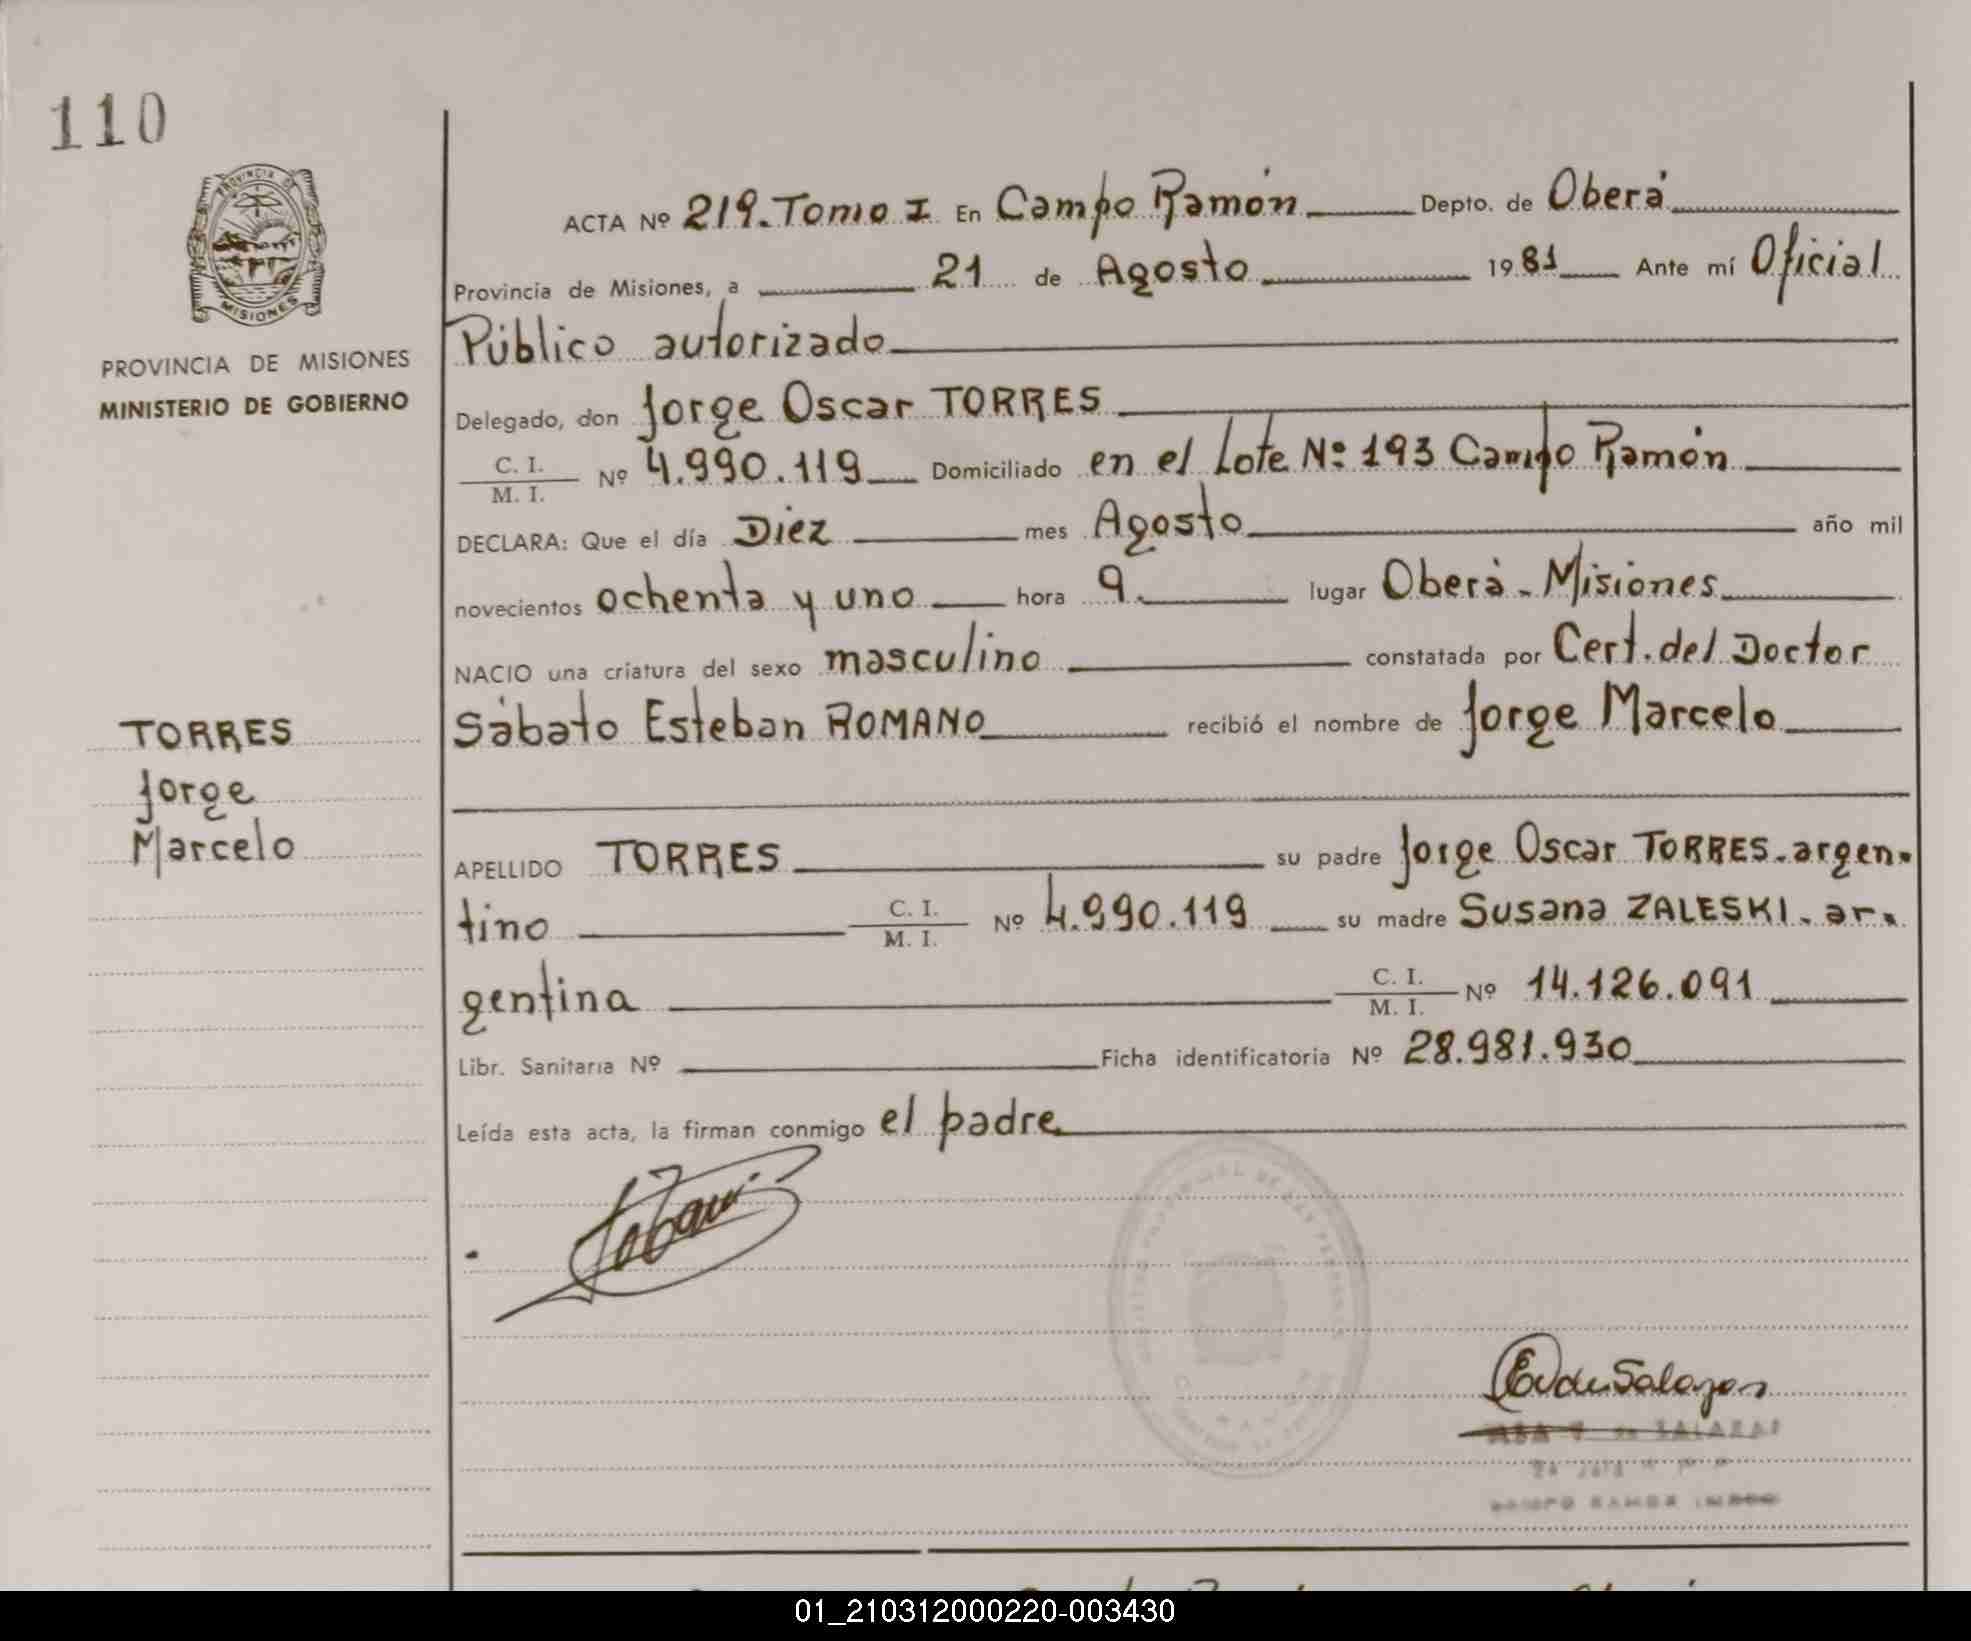 110
PROVINCIA DE
MISIONES
PROVINCIA DE MISIONES
MINISTERIO DE GOBIERNO
TORRES
Jorge
Marcelo
ACTA Nº 219.Tomo I En Campo Ramón Depto. de Oberá
Provincia de Misiones, a 21 de Agosto 1981 Ante mí Oficial
Público autorizado
Delegado, don Jorge Oscar TORRES
C. I.
M. I. Nº 4.990.119 Domiciliado en el Lote Nº 193 Campo Ramón
DECLARA: Que el día Diez mes Agosto año mil
novecientos ochenta y uno hora 9. lugar Oberá - Misiones
NACIO una criatura del sexo masculino constatada por Cert. del Doctor
Sábato Esteban ROMANO recibió el nombre de Jorge Marcelo
APELLIDO TORRES su padre Jorge Oscar TORRES - argen-
tino C. I. M. I. Nº 4.990.119 su madre Susana ZALESKI - ar-
gentina C. I. M. I. Nº 14.126.091
Libr. Sanitaria Nº Ficha identificatoria Nº 28.981.930
Leída esta acta, la firman conmigo el padre
de SALAZAR
CAMPO RAMON
01_210312000220-003430